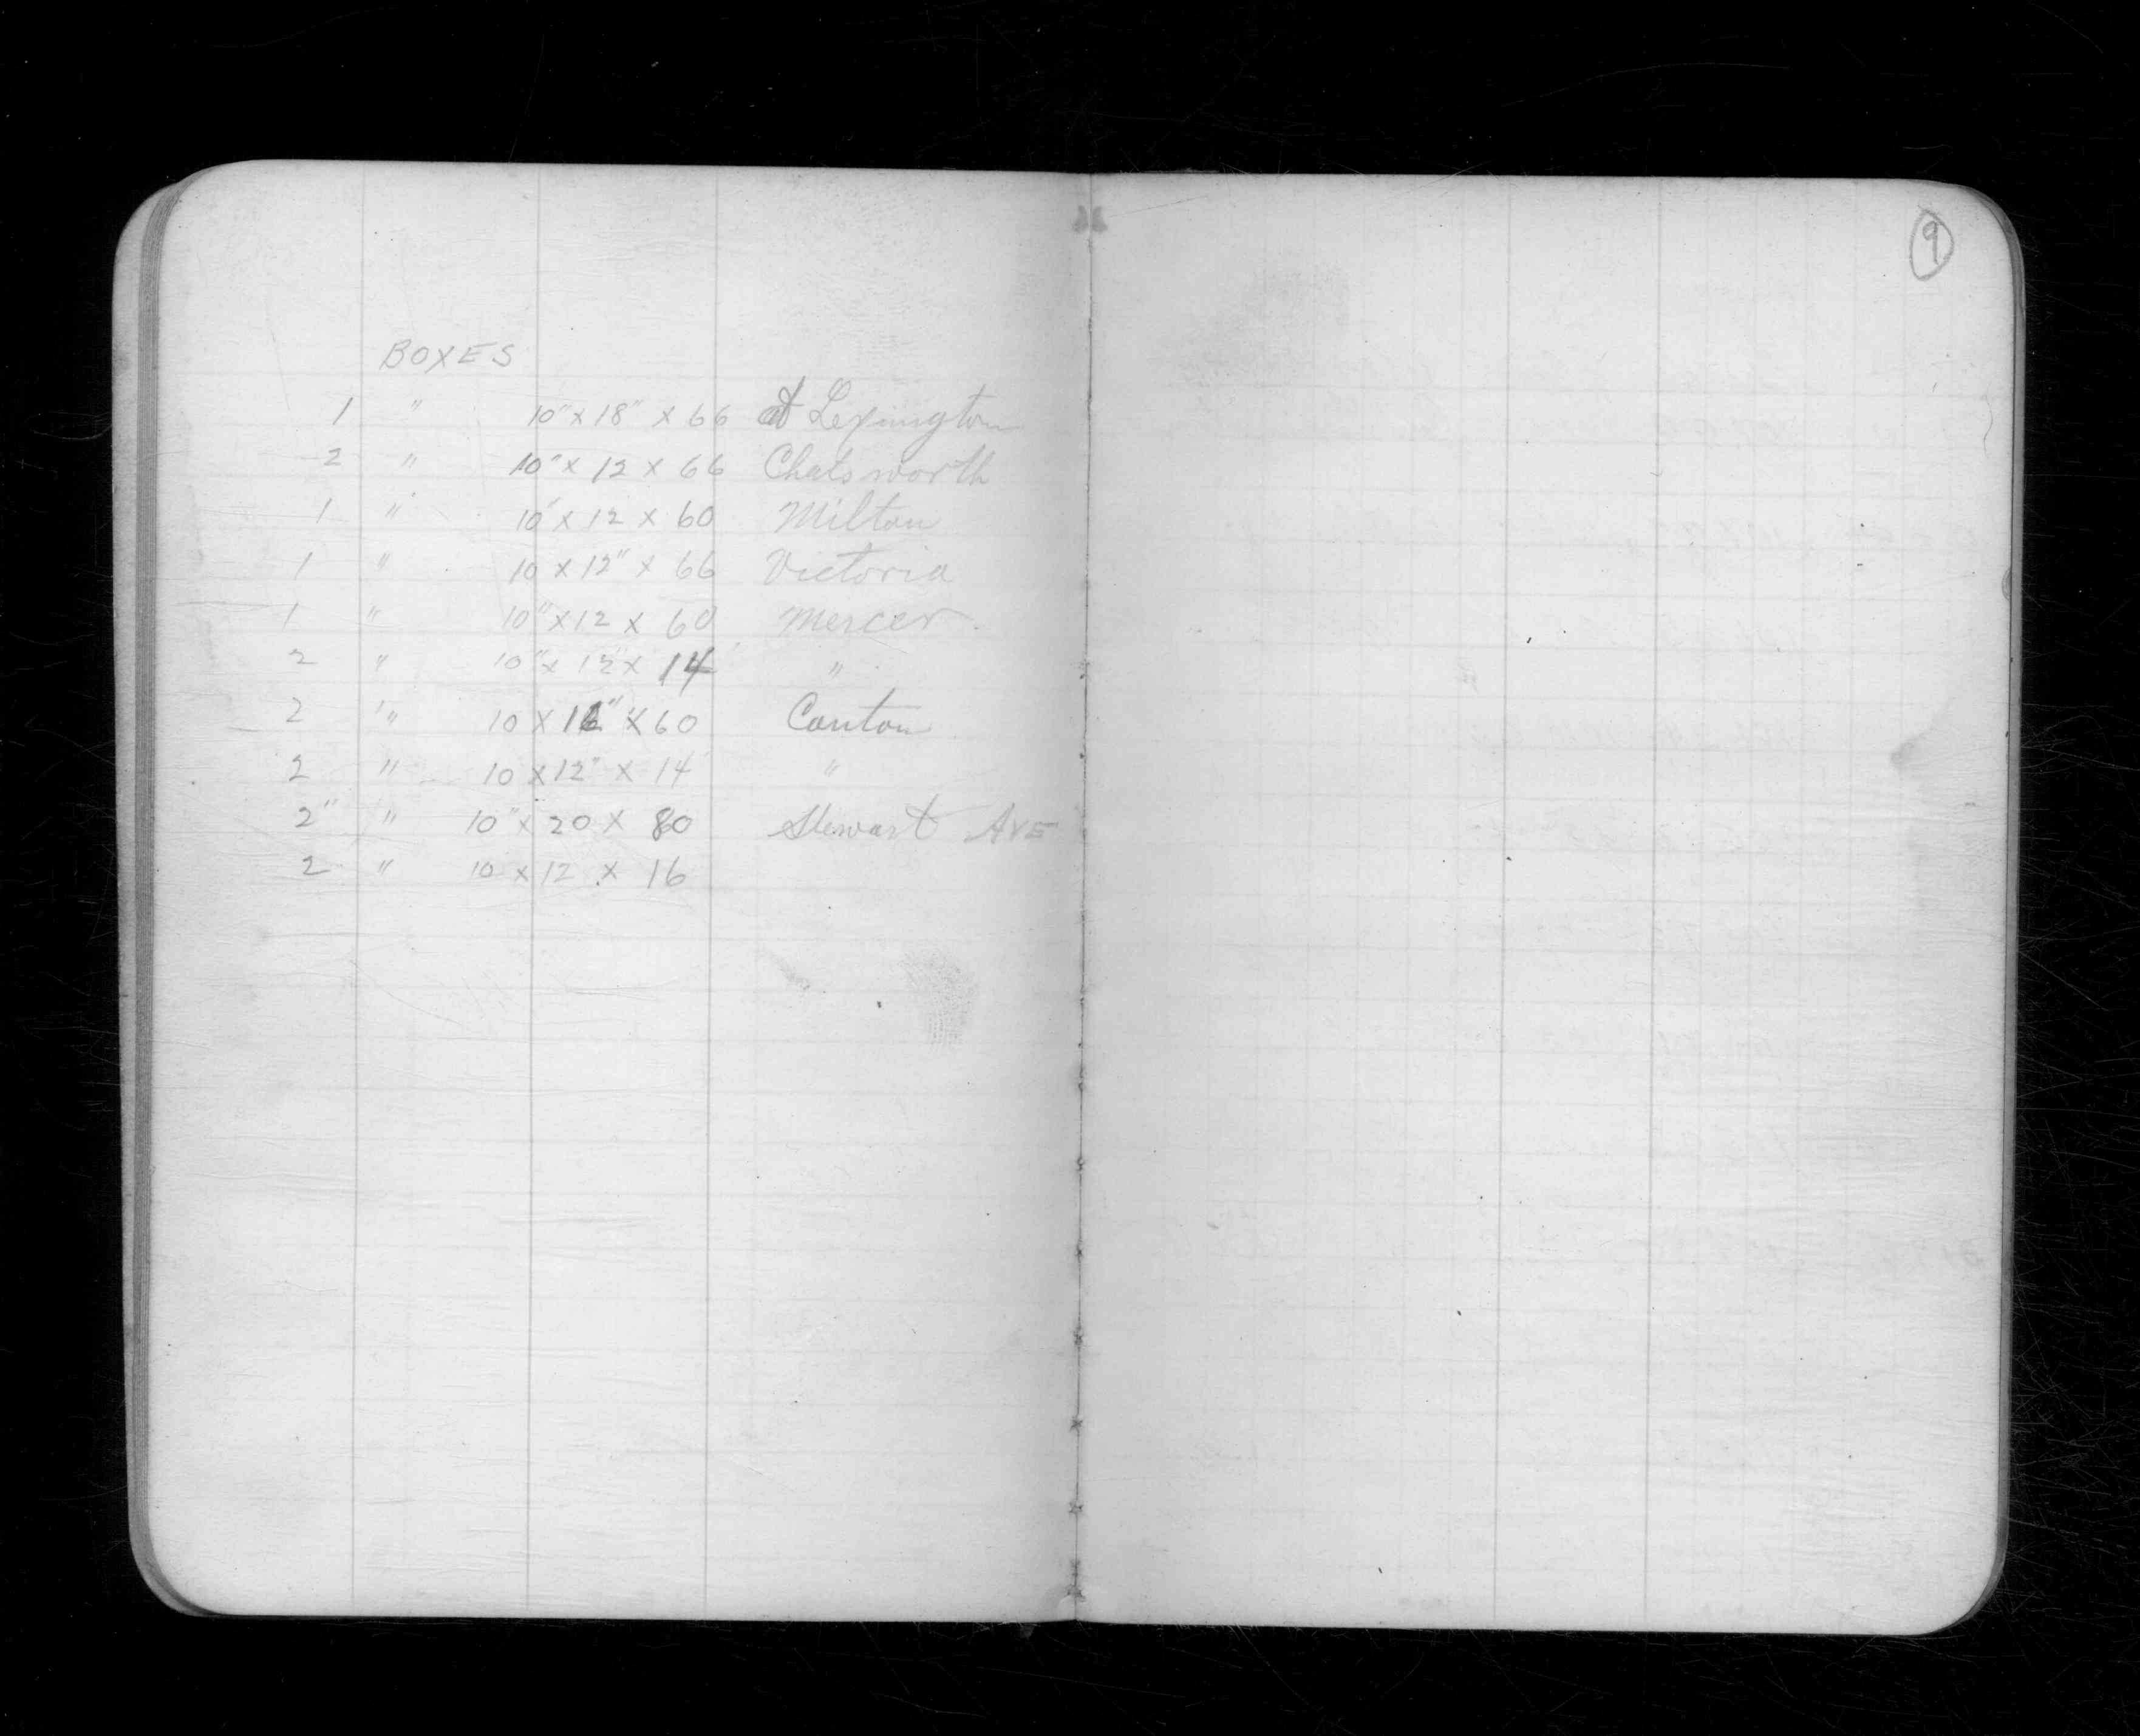 BOXES
1 " 10" x 18" x 66 at Lexington
2 " 10" x 12 x 66 Chatsworth
1 " 10" x 12 x 60 Milton
1 " 10 x 12" x 66 Victoria
1 " 10" x 12 x 60 Mercer
2 " 10" x 12 x 14 "
2 " 10 x 16" x 60 Canton
2 " 10 x 12" x 14 "
2" " 10" x 20 x 80 Stewart AVE
2 " 10 x 12 x 16
9